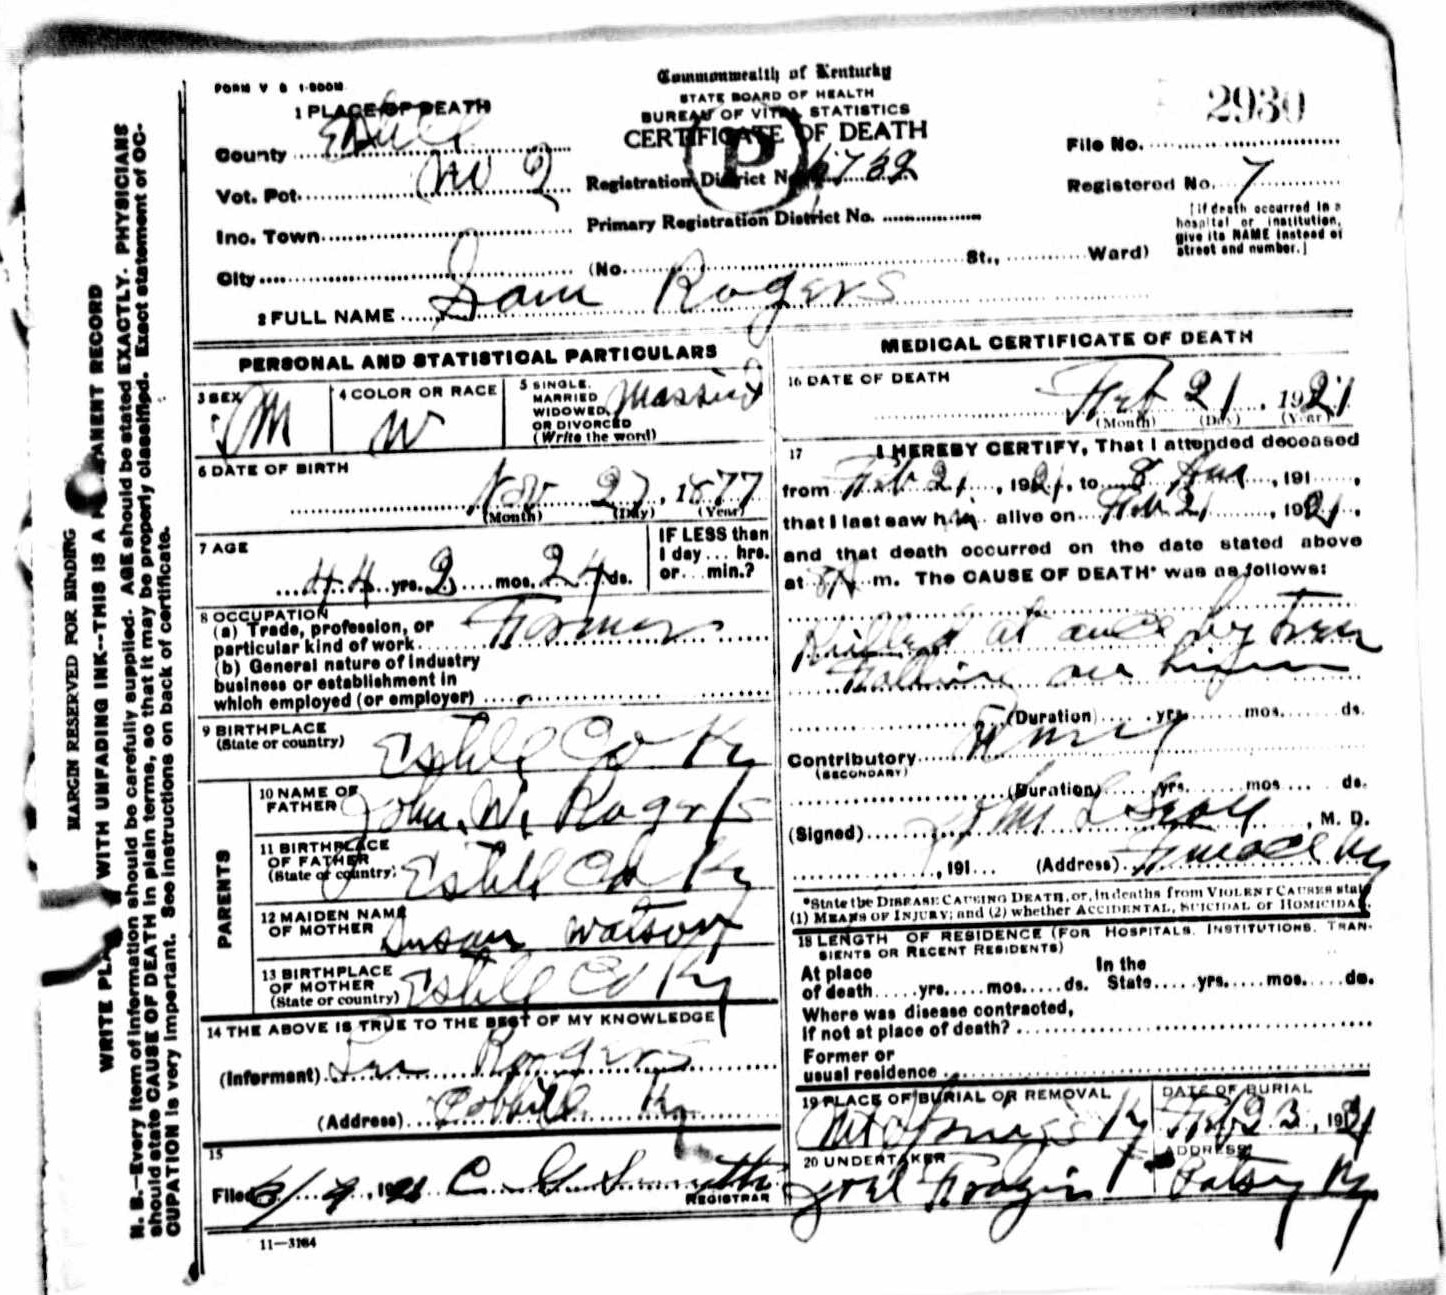 FORM V S 1-500M
Commonwealth of Kentucky
STATE BOARD OF HEALTH
BUREAU OF VITAL STATISTICS
CERTIFICATE OF DEATH
P
2930
File No.
Registered No. 7
[If death occurred in a hospital or institution, give its NAME instead of street and number.]
1 PLACE OF DEATH
County Estill
Vot. Pot. No 2
Registration District No. 1732
Inc. Town
Primary Registration District No.
City (No. St., Ward)
2 FULL NAME Sam Rogers
PERSONAL AND STATISTICAL PARTICULARS
3 SEX M
4 COLOR OR RACE W
5 SINGLE, MARRIED WIDOWED, OR DIVORCED (Write the word) Married
6 DATE OF BIRTH Nov 27, 1877
(Month) (Day) (Year)
7 AGE 44 yrs. 2 mos. 24 ds.
IF LESS than 1 day ... hrs. or ... min.?
8 OCCUPATION
(a) Trade, profession, or
particular kind of work Farmer
(b) General nature of industry
business or establishment in
which employed (or employer)
9 BIRTHPLACE
(State or country) Estill Co Ky
PARENTS
10 NAME OF FATHER John. W. Rogers
11 BIRTHPLACE OF FATHER (State or country) Estill Co Ky
12 MAIDEN NAME OF MOTHER Susan Watson
13 BIRTHPLACE OF MOTHER (State or country) Estill Co Ky
14 THE ABOVE IS TRUE TO THE BEST OF MY KNOWLEDGE
(Informant) Rogers
(Address) Ky
15
Filed 9, 1921 C G Smyth
REGISTRAR
11—3184
MEDICAL CERTIFICATE OF DEATH
16 DATE OF DEATH
Feb 21, 1921
(Month) (Day) (Year)
17 I HEREBY CERTIFY, That I attended deceased
from Feb 21, 1921, to 8 Am, 191 ,
that I last saw him alive on Feb 21, 1921,
and that death occurred on the date stated above
at 8 A m. The CAUSE OF DEATH* was as follows:
Killed at once by tree
Falling on him
(Duration) yrs. mos. ds.
Contributory
(SECONDARY)
(Duration) yrs. mos. ds.
(Signed) John , M. D.
, 191 (Address) Ky
*State the DISEASE CAUSING DEATH, or, in deaths from VIOLENT CAUSES state
(1) MEANS OF INJURY; and (2) whether ACCIDENTAL, SUICIDAL or HOMICIDAL.
18 LENGTH OF RESIDENCE (FOR HOSPITALS, INSTITUTIONS, TRANSIENTS OR RECENT RESIDENTS)
At place of death yrs. mos. ds. In the State yrs. mos. ds.
Where was disease contracted,
if not at place of death?
Former or
usual residence
19 PLACE OF BURIAL OR REMOVAL Ky
DATE OF BURIAL Feb 23, 1921
20 UNDERTAKER Joel
ADDRESS Patsey Ky
MARGIN RESERVED FOR BINDING
WRITE PLA WITH UNFADING INK--THIS IS A P MANENT RECORD
N. B.--Every item of information should be carefully supplied. AGE should be stated EXACTLY. PHYSICIANS
should state CAUSE OF DEATH in plain terms, so that it may be properly classified. Exact statement of OC-
CUPATION is very important. See instructions on back of certificate.